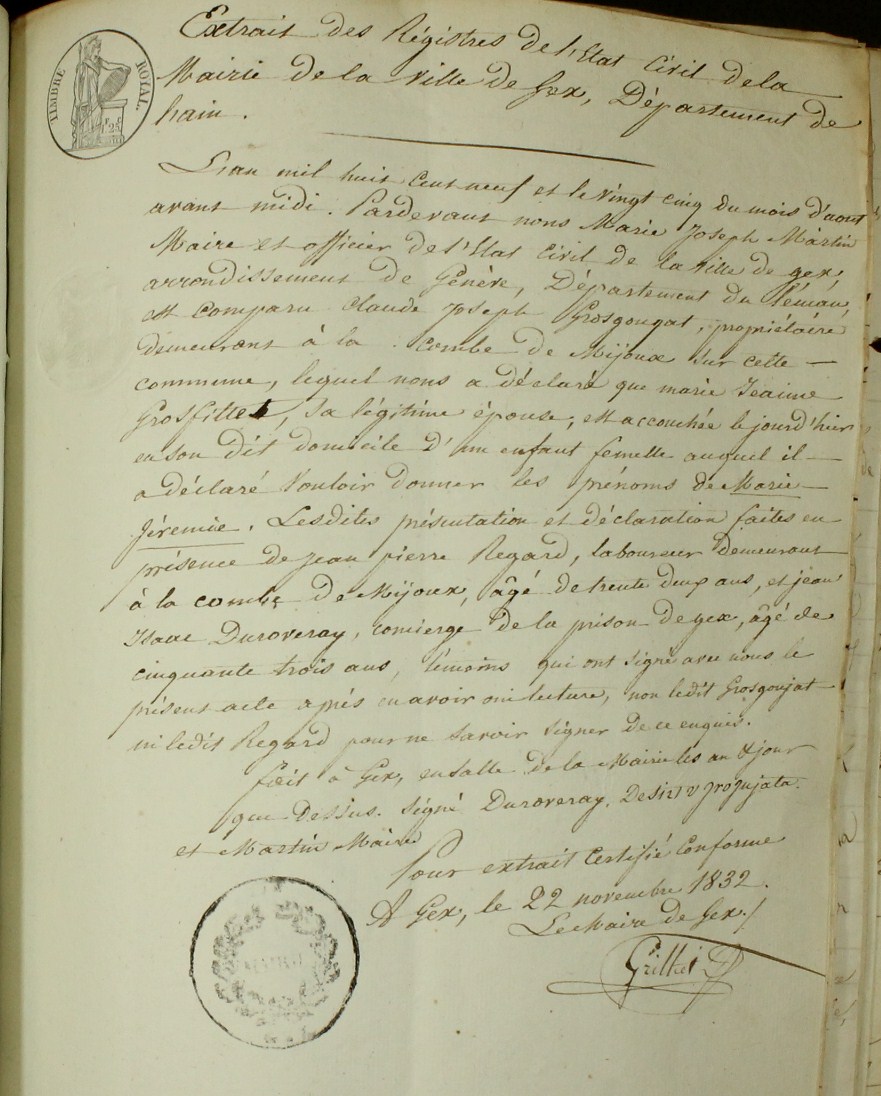 TIMBRE ROYAL
Extrait des Régistres de l'Etat Civil de la
Mairie de la Ville de Gex, Département de
l'ain.
L'an mil huit cent neuf et le vingt cinq du mois d'aout
avant midi. Pardevant nous Marie Joseph Martin
Maire et officier de l'Etat Civil de la ville de gex,
arrondissement de Genève, Département du Léman,
est comparu Claude Joseph Grosgougat, propriétaire
demeurant à la combe de Mijoux sur cette
commune, lequel nous a déclaré que marie Jeanne
Grosfillet, sa légitime épouse, est accouchée le jourd'hier
en son dit domicile d'un enfant femelle auquel il
a déclaré Vouloir donner les prénoms de Marie
Jéremie. Lesdites présentation et déclaration faites en
présence de jean pierre Regard, laboureur demeurant
à la combe de Mijoux, âgé de trente deux ans, et jean
Isaac Duroveray, concierge de la prison de gex, âgé de
cinquante trois ans, témoins qui ont signé avec nous le
présent acte après en avoir oui lecture, non ledit Grosgoujat
ni ledit Regard pour ne savoir signer de ce enquis.
fait à Gex, en salle de la Mairie les an & jour
que dessus. Signé Duroveray,
et Martin Maire
Pour extrait Certifié Conforme
A Gex, le 22 novembre 1832.
Le Maire de Gex
Grillet
MAIRIE